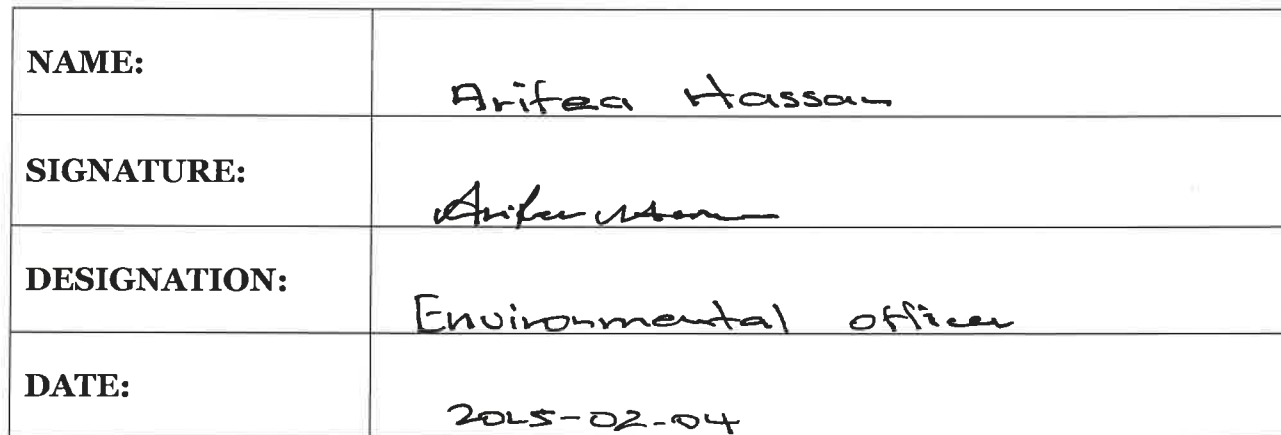 NAME: Arifea Hassan
SIGNATURE:
DESIGNATION: Environmental officer
DATE: 2025-02-04